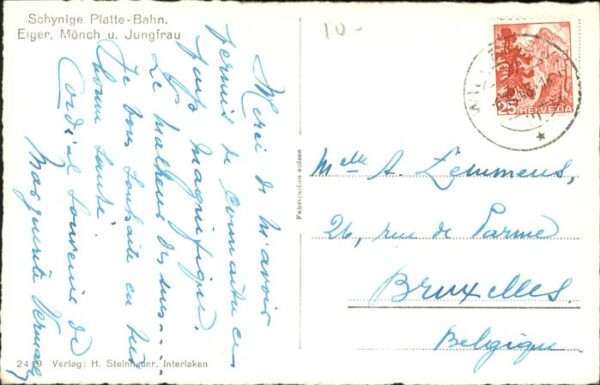 Schynige Platte-Bahn.
Eiger, Mönch u. Jungfrau
10-
HELVETIA
25
Merci de m'avoir
permis de connaître ces
pays magnifiques.
Le malheur des uns ....
Je vous souhaite en très
bonne santé.
Cordial souvenir de
Marguerite
Fabrication suisse
Melle A. Zemmens,
26, rue de Parme
Bruxelles.
Belgique
Verlag: H. Steinhauer, Interlaken